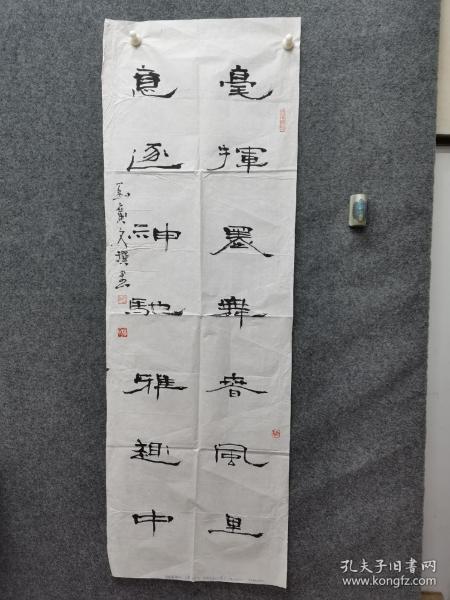 毫揮墨舞春風里
意逐神馳雅趣中
馬廣文撰書
孔夫子旧书网
www.kongfz.com